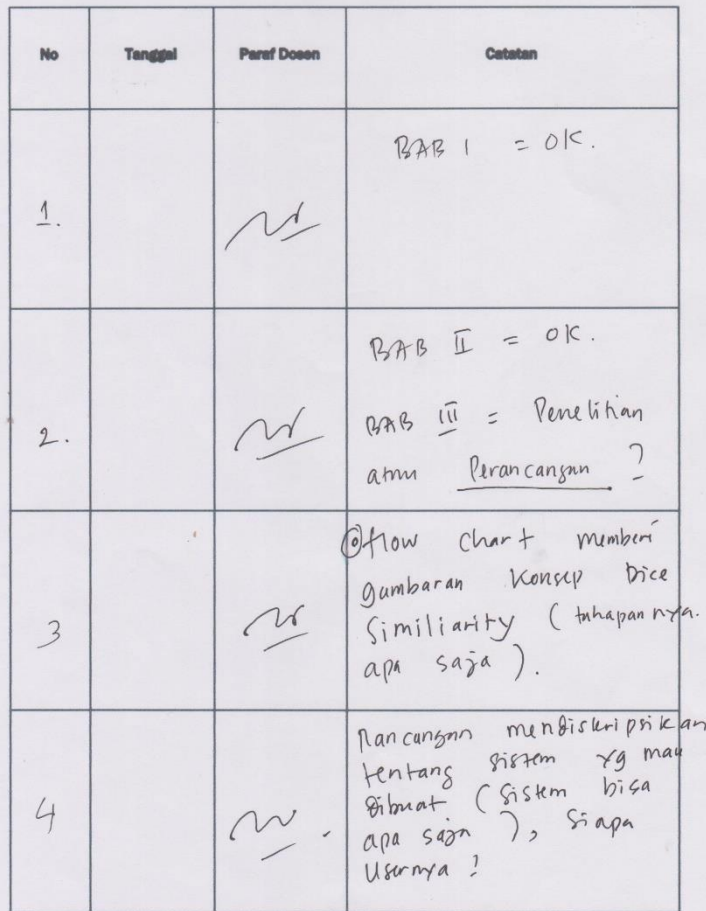 No Tanggal Paraf Dosen Catatan
1.
BAB I = OK.
2.
BAB II = OK.
BAB III = Penelitian
atau Perancangan ?
3
flow chart memberi
gambaran konsep Dice
Similiarity (tahapannya.
apa saja).
4
Rancangan mendiskripsikan
tentang sistem yg mau
dibuat (sistem bisa
apa saja), siapa
Usernya ?